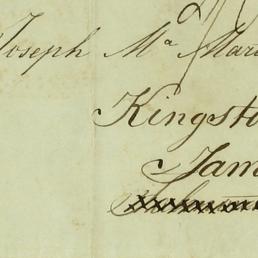 Joseph Ma Mari
Kingsto
Jam